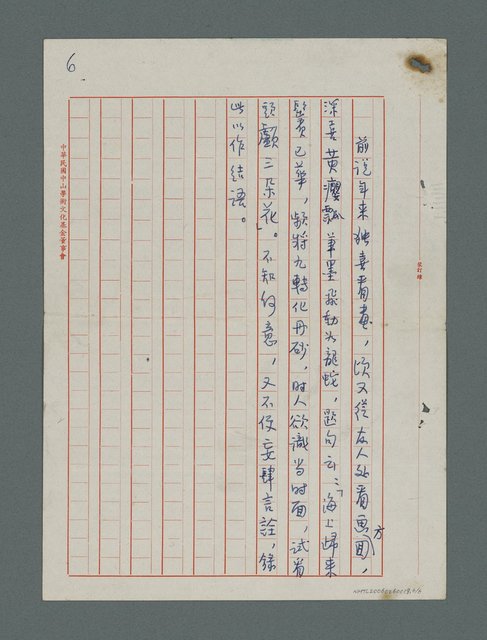 6
前说年来独喜看畫，頃又從友人处看画回，
方
深喜黄癭瓢筆墨飛動如龍蛇，題句云：「海上歸来
鬢已華，頻将九轉化丹砂，时人欲識当时面，試看
頭顱三朵花。」不知何意，又不便妄肆言詮，錄
此以作结语。
中華民國中山學術文化基金董事會
裝訂線